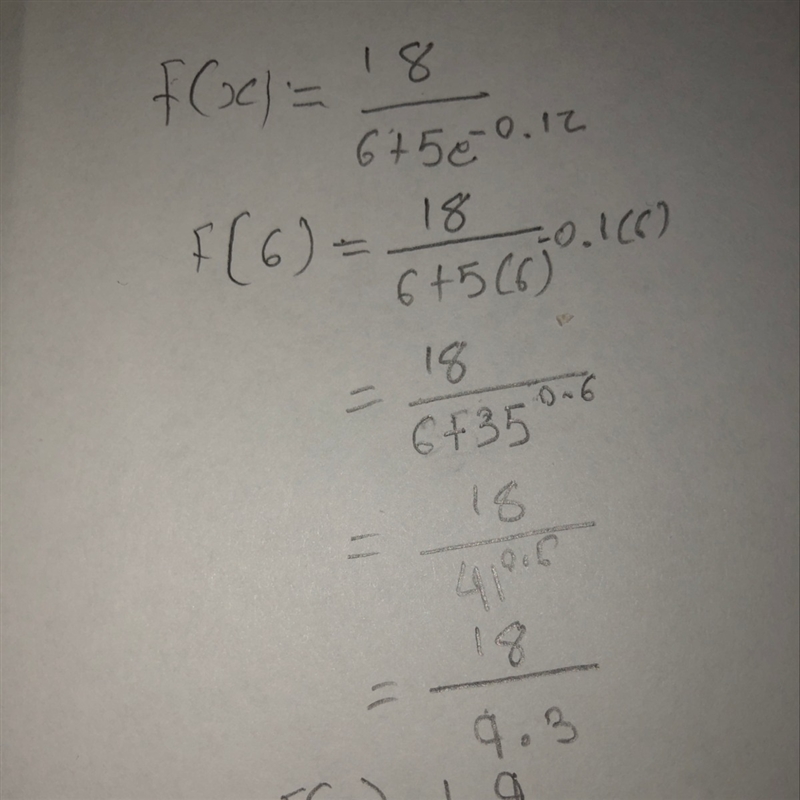 F(x) = 18 / 6+5e^-0.12
F(6) = 18 / 6+5(6)^-0.1(6)
= 18 / 6+35^0.6
= 18 / 41^0.6
= 18 / 9.3